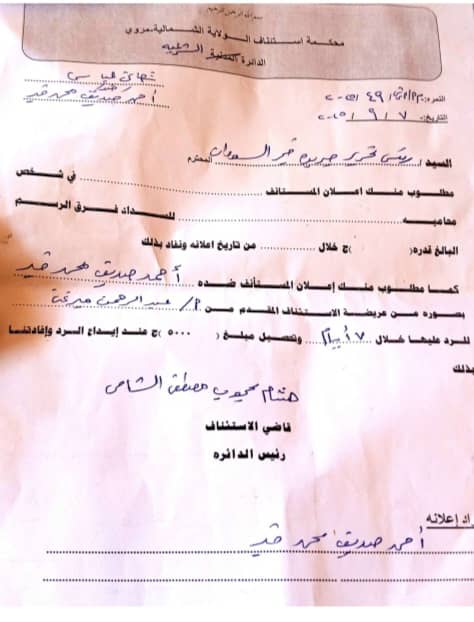 بسم الله الرحمن الرحيم
محكمة استئناف الولاية الشمالية-مروي
الدائرة الشرعية
النمرة:
التاريخ: ٢٠٢٥/٩/٧
أحمد صديق محمد خير
السيد/ رئيس تحرير جريدة فجر السودان المحترم
مطلوب منك اعلان المستأنف في شخص
محاميه للسداد فرق الرسم
البالغ قدره( )ج خلال من تاريخ اعلانه ونفاد بذلك
كما مطلوب منك إعلان المستأنف ضده أحمد صديق محمد خير
بصوره من عريضة الاستئناف المقدم من م/ عبد الرحمن
للرد عليها خلال ٧ أيام وتحصيل مبلغ ( ٥٠٠٠ )ج عند إيداع الرد وإفادتنا
بذلك
هشام محجوب مصطفى الشامي
قاضي الاستئناف
رئيس الدائره
راد إعلانه
أحمد صديق محمد خير